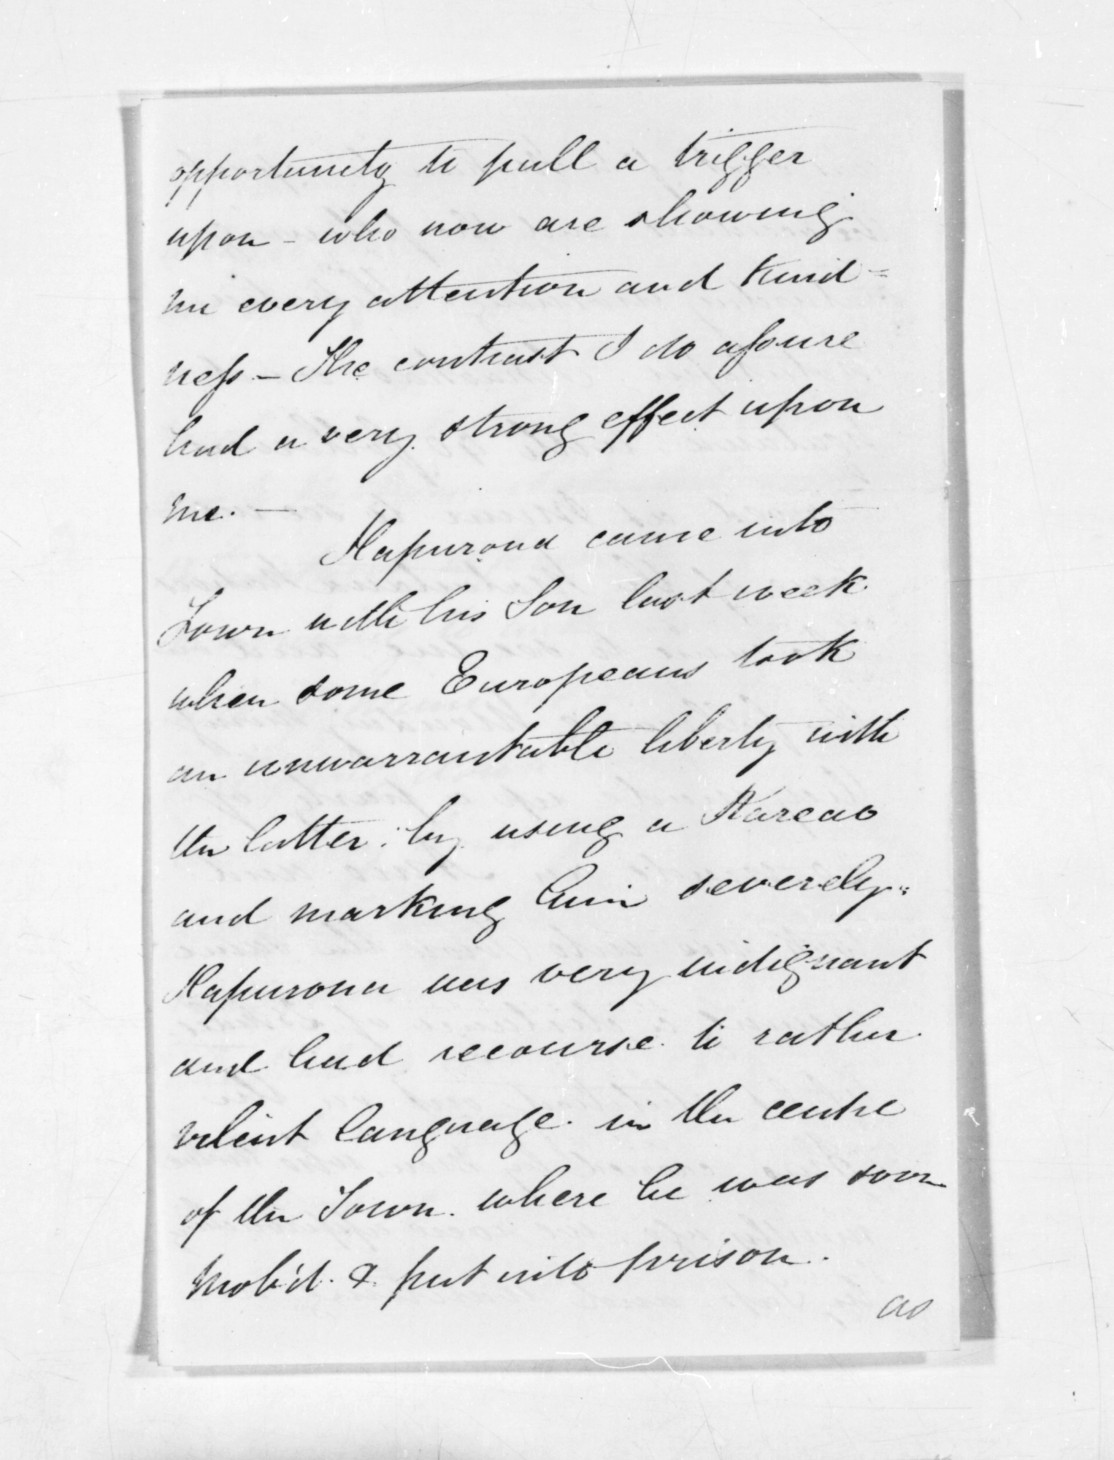 opportunity to pull a trigger
upon - who now are showing
me every attention and kind=
ness - The contrast I do assure
had a very strong effect upon
me. -
Hapurona came into
Town with his Son last week
when some Europeans took
an unwarrantable liberty with
the latter: by using a Kareao
and marking him severely.
Hapurona was very indignant
and had recourse to rather
violent language. in the centre
of the Town. where he was soon
Mob'd. & put into prison.
as